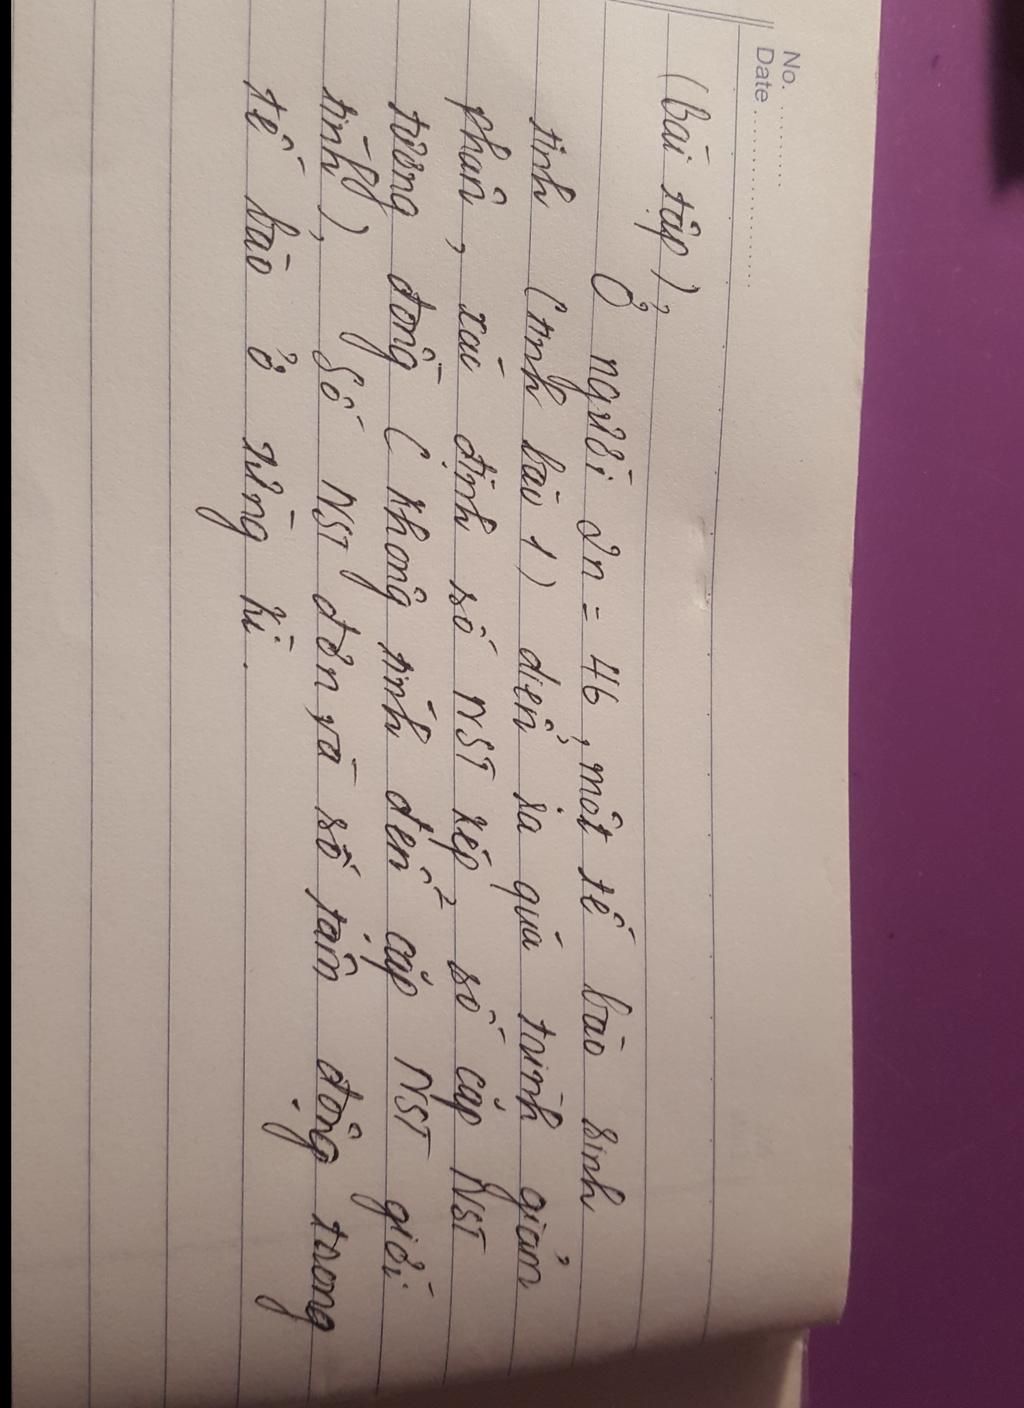 No. ............
Date .....................
(bài tập),
Ở người 2n = 46, một tế bào sinh
tinh (tinh bào 1) diễn ra quá trình giảm
phân, xác định số NST kép, số cặp NST
tương đồng (không tính đến cặp NST giới
tính), số NST đơn và số tâm động trong
tế bào ở từng kì.